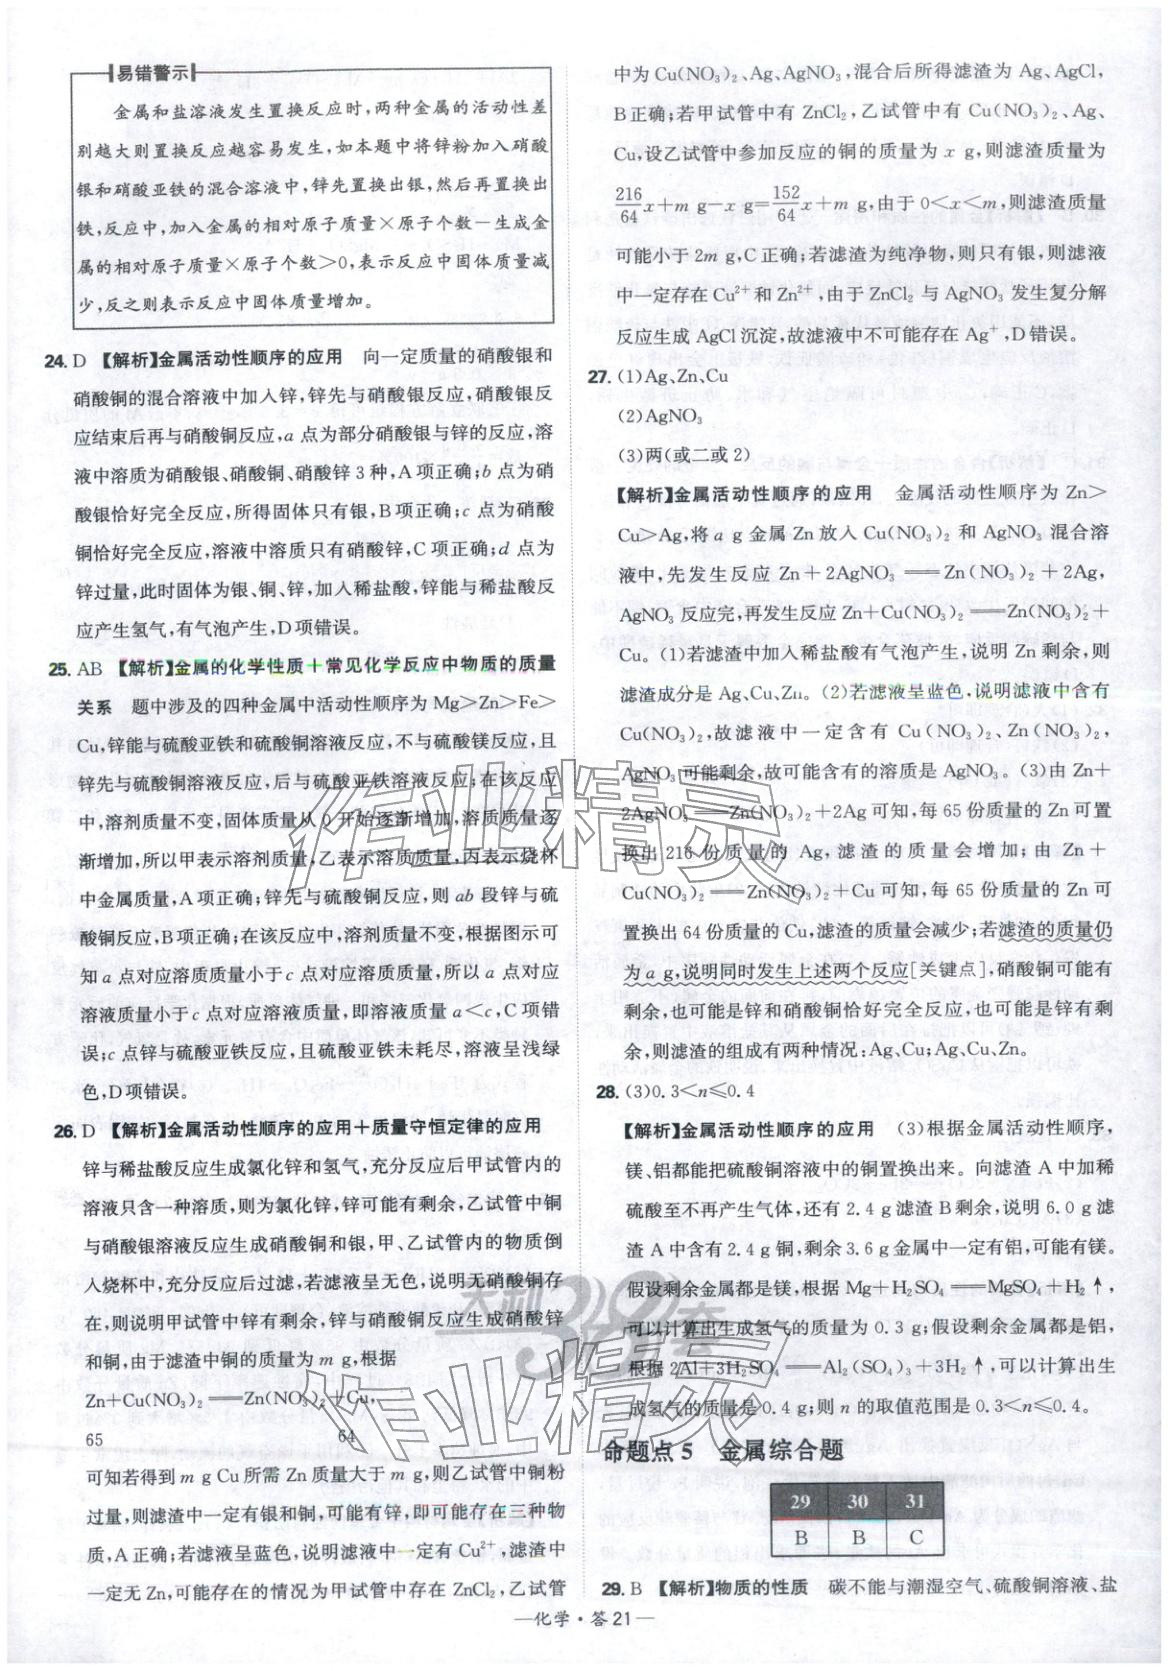 易错警示
金属和盐溶液发生置换反应时,两种金属的活动性差
别越大则置换反应越容易发生,如本题中将锌粉加入硝酸
银和硝酸亚铁的混合溶液中,锌先置换出银,然后再置换出
铁,反应中,加入金属的相对原子质量×原子个数-生成金
属的相对原子质量×原子个数>0,表示反应中固体质量减
少,反之则表示反应中固体质量增加。
24. D 【解析】金属活动性顺序的应用 向一定质量的硝酸银和
硝酸铜的混合溶液中加入锌,锌先与硝酸银反应,硝酸银反
应结束后再与硝酸铜反应,a 点为部分硝酸银与锌的反应,溶
液中溶质为硝酸银、硝酸铜、硝酸锌 3 种,A 项正确;b 点为硝
酸银恰好完全反应,所得固体只有银,B 项正确;c 点为硝酸
铜恰好完全反应,溶液中溶质只有硝酸锌,C 项正确;d 点为
锌过量,此时固体为银、铜、锌,加入稀盐酸,锌能与稀盐酸反
应产生氢气,有气泡产生,D 项错误。
25. AB 【解析】金属的化学性质+常见化学反应中物质的质量
关系 题中涉及的四种金属中活动性顺序为 Mg>Zn>Fe>
Cu,锌能与硫酸亚铁和硫酸铜溶液反应,不与硫酸镁反应,且
锌先与硫酸铜溶液反应,后与硫酸亚铁溶液反应;在该反应
中,溶剂质量不变,固体质量从 0 开始逐渐增加,溶质质量逐
渐增加,所以甲表示溶剂质量,乙表示溶质质量,丙表示烧杯
中金属质量,A 项正确;锌先与硫酸铜反应,则 ab 段锌与硫
酸铜反应,B 项正确;在该反应中,溶剂质量不变,根据图示可
知 a 点对应溶质质量小于 c 点对应溶质质量,所以 a 点对应
溶液质量小于 c 点对应溶液质量,即溶液质量 a<c,C 项错
误;c 点锌与硫酸亚铁反应,且硫酸亚铁未耗尽,溶液呈浅绿
色,D 项错误。
26. D 【解析】金属活动性顺序的应用+质量守恒定律的应用
锌与稀盐酸反应生成氯化锌和氢气,充分反应后甲试管内的
溶液只含一种溶质,则为氯化锌,锌可能有剩余,乙试管中铜
与硝酸银溶液反应生成硝酸铜和银,甲、乙试管内的物质倒
入烧杯中,充分反应后过滤,若滤液呈无色,说明无硝酸铜存
在,则说明甲试管中锌有剩余,锌与硝酸铜反应生成硝酸锌
和铜,由于滤渣中铜的质量为 m g,根据
Zn+Cu(NO₃)₂══Zn(NO₃)₂+Cu,
65 64
可知若得到 m g Cu 所需 Zn 质量大于 m g,则乙试管中铜粉
过量,则滤渣中一定有银和铜,可能有锌,即可能存在三种物
质,A 正确;若滤液呈蓝色,说明滤液中一定有 Cu²⁺,滤渣中
一定无 Zn,可能存在的情况为甲试管中存在 ZnCl₂,乙试管
中为 Cu(NO₃)₂、Ag、AgNO₃,混合后所得滤渣为 Ag、AgCl,
B 正确;若甲试管中有 ZnCl₂,乙试管中有 Cu(NO₃)₂、Ag、
Cu,设乙试管中参加反应的铜的质量为 x g,则滤渣质量为
216/64 x+m g-x g=152/64 x+m g,由于 0<x<m,则滤渣质量
可能小于 2m g,C 正确;若滤渣为纯净物,则只有银,则滤液
中一定存在 Cu²⁺和 Zn²⁺,由于 ZnCl₂ 与 AgNO₃ 发生复分解
反应生成 AgCl 沉淀,故滤液中不可能存在 Ag⁺,D 错误。
27. (1)Ag、Zn、Cu
(2)AgNO₃
(3)两(或二或 2)
【解析】金属活动性顺序的应用 金属活动性顺序为 Zn>
Cu>Ag,将 a g 金属 Zn 放入 Cu(NO₃)₂ 和 AgNO₃ 混合溶
液中,先发生反应 Zn+2AgNO₃══Zn(NO₃)₂+2Ag,
AgNO₃ 反应完,再发生反应 Zn+Cu(NO₃)₂══Zn(NO₃)₂+
Cu。(1)若滤渣中加入稀盐酸有气泡产生,说明 Zn 剩余,则
滤渣成分是 Ag、Cu、Zn。(2)若滤液呈蓝色,说明滤液中含有
Cu(NO₃)₂,故滤液中一定含有 Cu(NO₃)₂、Zn(NO₃)₂,
AgNO₃ 可能剩余,故可能含有的溶质是 AgNO₃。(3)由 Zn+
2AgNO₃══Zn(NO₃)₂+2Ag 可知,每 65 份质量的 Zn 可置
换出 216 份质量的 Ag,滤渣的质量会增加;由 Zn+
Cu(NO₃)₂══Zn(NO₃)₂+Cu 可知,每 65 份质量的 Zn 可
置换出 64 份质量的 Cu,滤渣的质量会减少;若滤渣的质量仍
为 a g,说明同时发生上述两个反应[关键点],硝酸铜可能有
剩余,也可能是锌和硝酸铜恰好完全反应,也可能是锌有剩
余,则滤渣的组成有两种情况:Ag、Cu;Ag、Cu、Zn。
28. (3)0.3<n≤0.4
【解析】金属活动性顺序的应用 (3)根据金属活动性顺序,
镁、铝都能把硫酸铜溶液中的铜置换出来。向滤渣 A 中加稀
硫酸至不再产生气体,还有 2.4 g 滤渣 B 剩余,说明 6.0 g 滤
渣 A 中含有 2.4 g 铜,剩余 3.6 g 金属中一定有铝,可能有镁。
假设剩余金属都是镁,根据 Mg+H₂SO₄══MgSO₄+H₂↑,
可以计算出生成氢气的质量为 0.3 g;假设剩余金属都是铝,
根据 2Al+3H₂SO₄══Al₂(SO₄)₃+3H₂↑,可以计算出生
成氢气的质量是 0.4 g;则 n 的取值范围是 0.3<n≤0.4。
命题点 5 金属综合题
29 30 31
B B C
29. B 【解析】物质的性质 碳不能与潮湿空气、硫酸铜溶液、盐
—化学·答 21—
作业精灵
天利38套
作业精灵